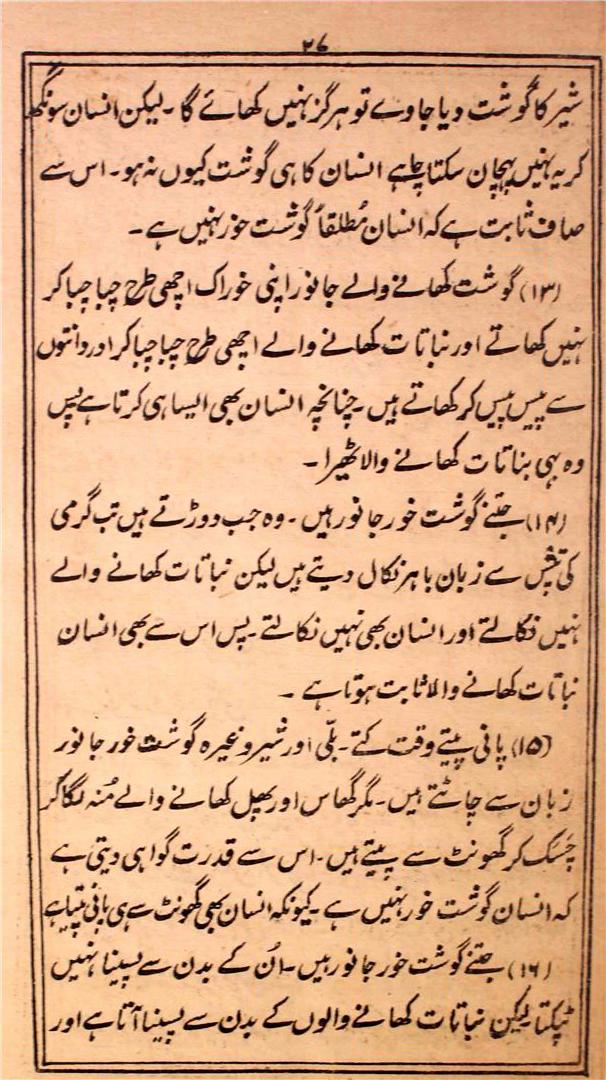 ۲۶
شیر کا گوشت دیا جاوے تو ہرگز نہیں کھائے گا۔ لیکن انسان سونگھ
کر یہ نہیں پہچان سکتا چاہے انسان کا ہی گوشت کیوں نہ ہو۔ اس سے
صاف ثابت ہے کہ انسان مُطلقاً گوشت خور نہیں ہے۔
(۱۳) گوشت کھانے والے جانور اپنی خوراک اچھی طرح چبا چبا کر
نہیں کھاتے اور نباتات کھانے والے اچھی طرح چبا چبا کر اور دانتوں
سے پیس پیس کر کھاتے ہیں۔ چنانچہ انسان بھی ایسا ہی کرتا ہے پس
وہ بھی بناتات کھانے والا ٹھیرا۔
(۱۴) جتنے گوشت خور جانور ہیں۔ وہ جب دوڑتے ہیں تب گرمی
کی تپش سے زبان باہر نکال دیتے ہیں لیکن نباتات کھانے والے
نہیں نکالتے اور انسان بھی نہیں نکالتے۔ پس اس سے بھی انسان
نباتات کھانے والا ثابت ہوتا ہے۔
(۱۵) پانی پیتے وقت کتے۔ بلّی اور شیر وغیرہ گوشت خور جانور
زبان سے چاٹتے ہیں۔ مگر گھاس اور پھل کھانے والے مُنہ لگا کر
چُسک کر گھونٹ سے پیتے ہیں۔ اس سے قدرت گواہی دیتی ہے
کہ انسان گوشت خور نہیں ہے۔ کیونکہ انسان بھی گھونٹ سے ہی پانی پیتا ہے
(۱۶) جتنے گوشت خور جانور ہیں۔ اُن کے بدن سے پسینا نہیں
ٹپکتا لیکن نباتات کھانے والوں کے بدن سے پسینا آتا ہے اور